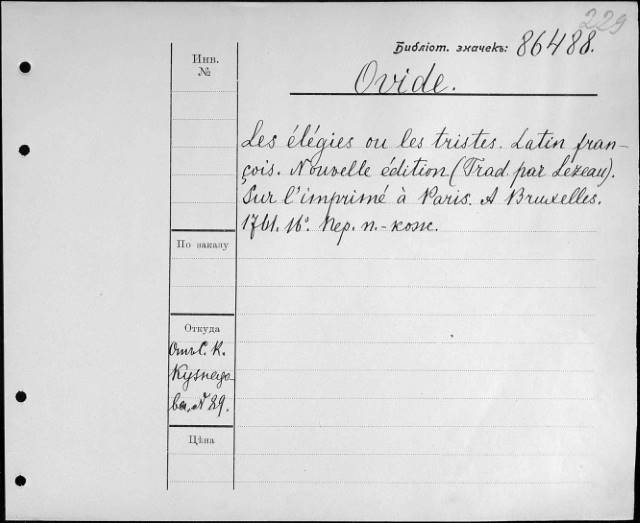 229
Библіот. значекъ: 86488.
Инв.
№
Ovide.
Les élégies ou les tristes. Latin fran-
çois. Nouvelle édition (Trad. par Lezeau).
Sur l'imprimé à Paris. A Bruxelles.
1761. 16°. Пер. п.-кож.
По заказу
Откуда
Отъ С. К.
Кузнецо-
ва, № 29.
Цѣна